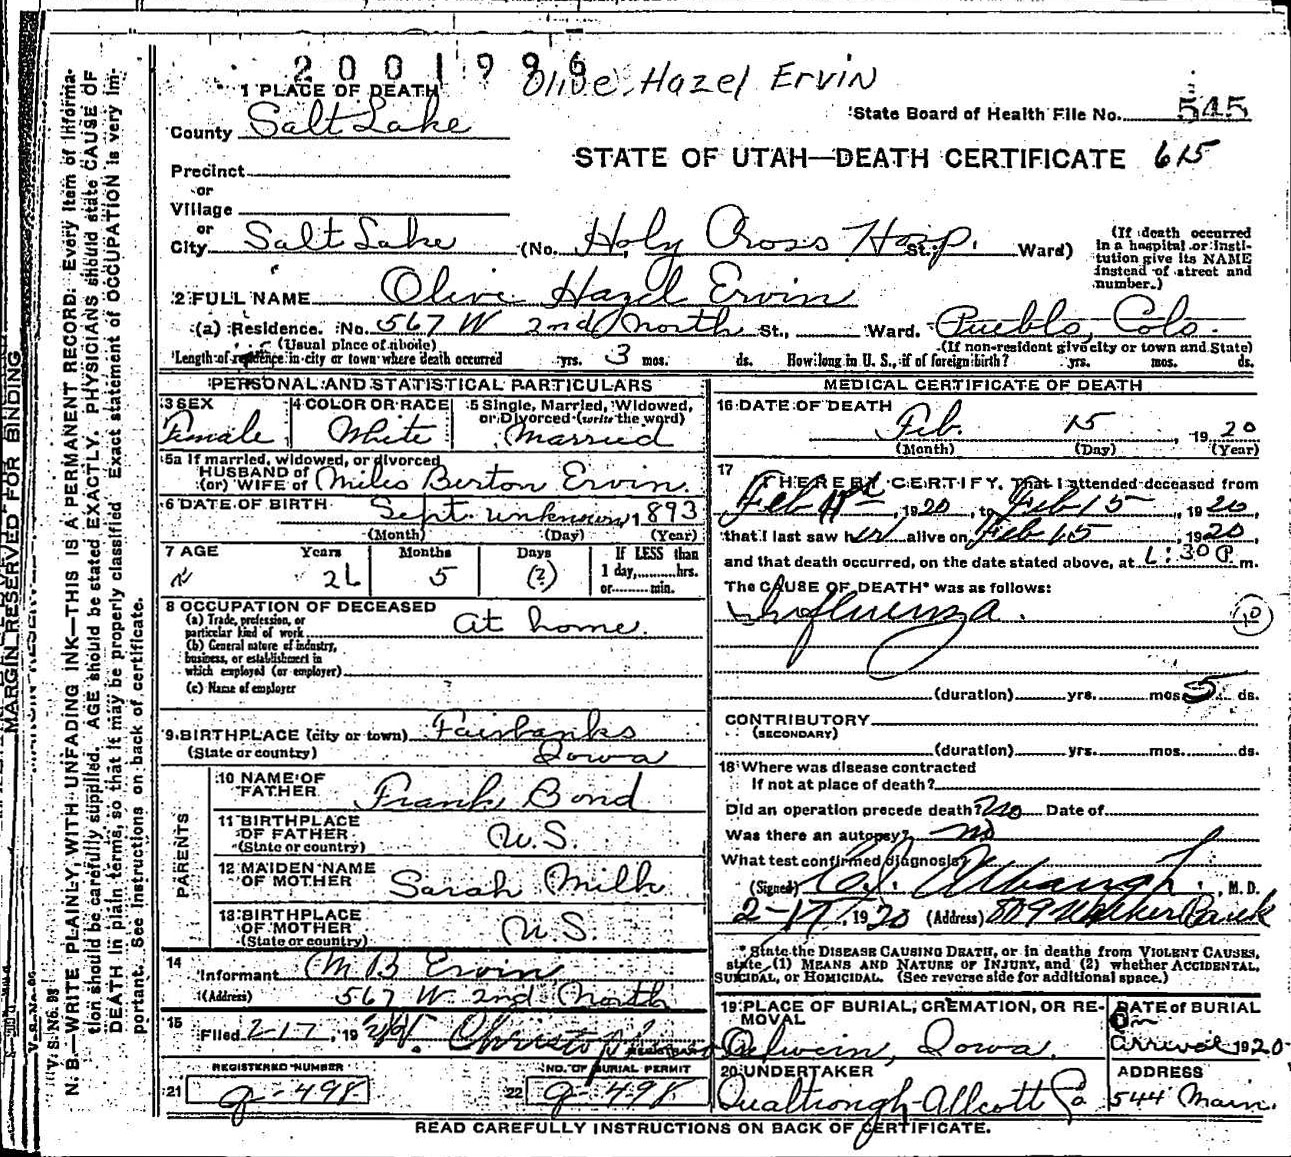 2001996 Olive Hazel Ervin
1 PLACE OF DEATH
State Board of Health File No. 545
County Salt Lake
STATE OF UTAH—DEATH CERTIFICATE 615
Precinct
or
Village
or
City Salt Lake (No. Holy Cross Hosp. St.; Ward)
(If death occurred in a hospital or institution give its NAME instead of street and number.)
2 FULL NAME Olive Hazel Ervin
(a) Residence. No. 567 W 2nd North St., Ward. Pueblo, Colo.
(Usual place of abode) (If non-resident give city or town and State)
Length of residence in city or town where death occurred yrs. 3 mos. ds. How long in U. S., if of foreign birth? yrs. mos. ds.
PERSONAL AND STATISTICAL PARTICULARS
3 SEX Female
4 COLOR OR RACE White
5 Single, Married, Widowed, or Divorced (write the word) Married
5a If married, widowed, or divorced
HUSBAND of
(or) WIFE of Miles Burton Ervin
6 DATE OF BIRTH Sept. unknown 1893
(Month) (Day) (Year)
7 AGE Years 26 Months 5 Days (?) If LESS than 1 day, hrs. or min.
8 OCCUPATION OF DECEASED
(a) Trade, profession, or particular kind of work At home.
(b) General nature of industry, business, or establishment in which employed (or employer)
(c) Name of employer
9 BIRTHPLACE (city or town) Fairbanks
(State or country) Iowa
PARENTS
10 NAME OF FATHER Frank Bond
11 BIRTHPLACE OF FATHER (State or country) U.S.
12 MAIDEN NAME OF MOTHER Sarah Milk
13 BIRTHPLACE OF MOTHER (State or country) U.S.
14 Informant M B Ervin
(Address) 567 W. 2nd North
15 Filed 2-17, 19
REGISTERED NUMBER NO. OF BURIAL PERMIT
21 g-498 22 g-498
MEDICAL CERTIFICATE OF DEATH
16 DATE OF DEATH Feb. 15, 1920
(Month) (Day) (Year)
17 I HEREBY CERTIFY, That I attended deceased from
Feb 11, 1920, to Feb 15, 1920,
that I last saw her alive on Feb 15, 1920,
and that death occurred, on the date stated above, at 1:30 P. m.
The CAUSE OF DEATH* was as follows:
Influenza. 10
(duration) yrs. mos. 5 ds.
CONTRIBUTORY
(SECONDARY)
(duration) yrs. mos. ds.
18 Where was disease contracted
If not at place of death?
Did an operation precede death? No Date of
Was there an autopsy? No
What test confirmed diagnosis?
(Signed) , M. D.
2-17, 1920 (Address) 809 Walker Bank
*State the DISEASE CAUSING DEATH, or in deaths from VIOLENT CAUSES, state (1) MEANS AND NATURE OF INJURY, and (2) whether ACCIDENTAL, SUICIDAL, or HOMICIDAL. (See reverse side for additional space.)
19 PLACE OF BURIAL, CREMATION, OR REMOVAL Oelwein, Iowa.
DATE OF BURIAL On arrival 1920
20 UNDERTAKER Qualtrough-Allcott Co
ADDRESS 544 Main.
READ CAREFULLY INSTRUCTIONS ON BACK OF CERTIFICATE.
MARGIN RESERVED FOR BINDING
V. S. No.
N. B.—WRITE PLAINLY, WITH UNFADING INK—THIS IS A PERMANENT RECORD. Every item of information should be carefully supplied. AGE should be stated EXACTLY. PHYSICIANS should state CAUSE OF DEATH in plain terms, so that it may be properly classified. Exact statement of OCCUPATION is very important. See instructions on back of certificate.